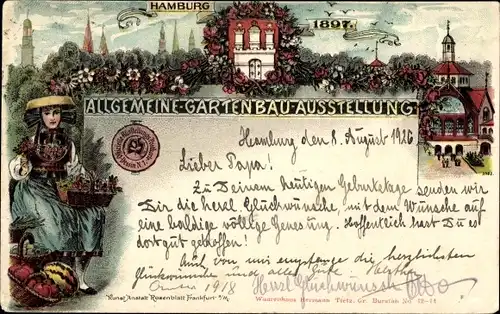 HAMBURG
1897.
ALLGEMEINE-GARTENBAU-AUSSTELLUNG
Hamburg den 8. August 1920
Lieber Papa!
Zu Deinem heutigen Geburtstage senden wir
Dir die herzl Glückwünsche, mit dem Wunsche auf
eine baldige völlige Genesung. Hoffentlich hast Du es
dort gut getroffen!
Auch von uns empfange die herzlichsten
Glückwünsche und alles Gute
1918
Herzl Glückwünsche Otto
Kunst Anstalt Rosenblatt Frankfurt a/M.
Waarenhaus Hermann Tietz, Gr. Burstah No 12-14